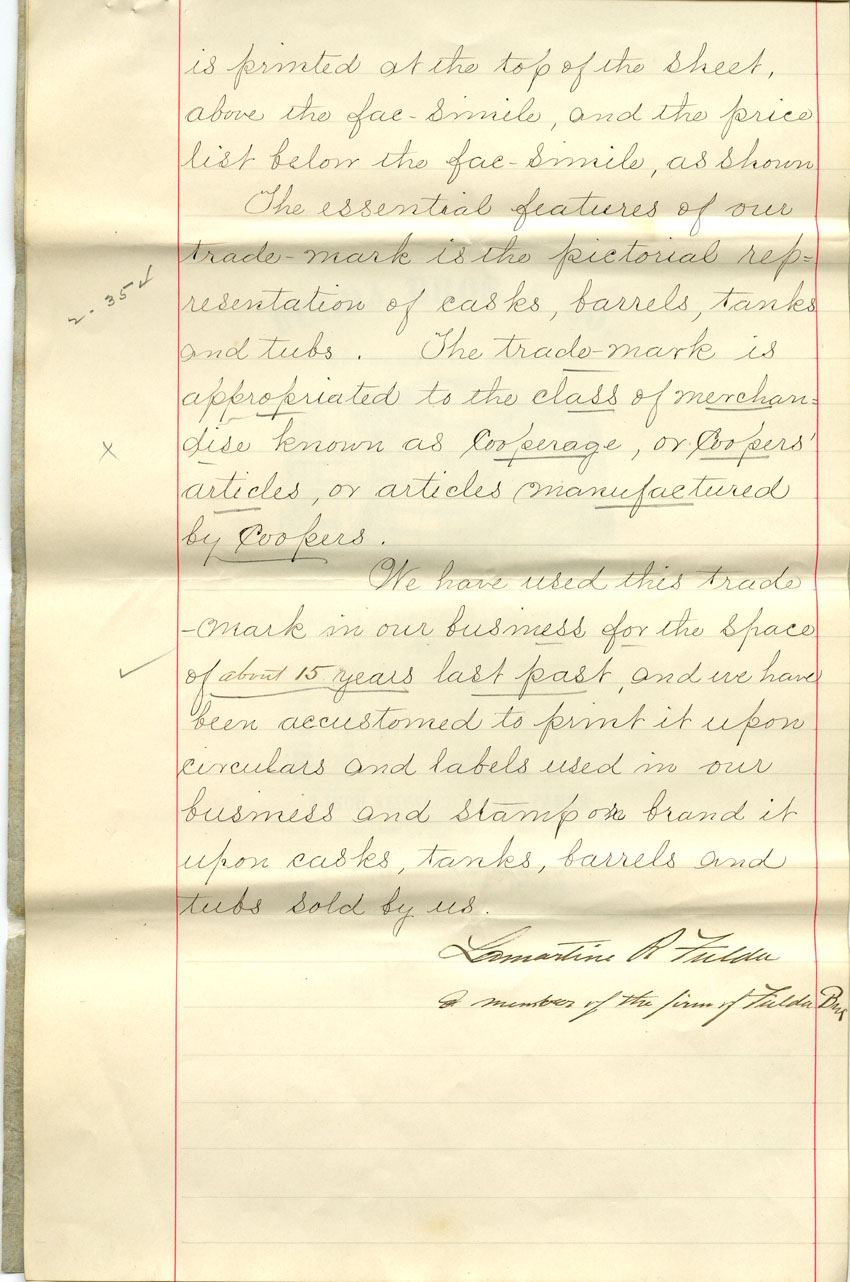 is printed at the top of the sheet,
above the fac-simile, and the price
list below the fac-simile, as shown
The essential features of our
trade-mark is the pictorial rep=
resentation of casks, barrels, tanks
2.35
and tubs. The trade-mark is
appropriated to the class of merchan=
dise known as Cooperage, or Coopers'
x
articles, or articles manufactured
by Coopers.
We have used this trade
-mark in our business for the space
of about 15 years last past, and we have
been accustomed to print it upon
circulars and labels used in our
business and stamp or brand it
upon casks, tanks, barrels and
tubs sold by us.
Lamartine R Fulda
a member of the firm of Fulda Bros